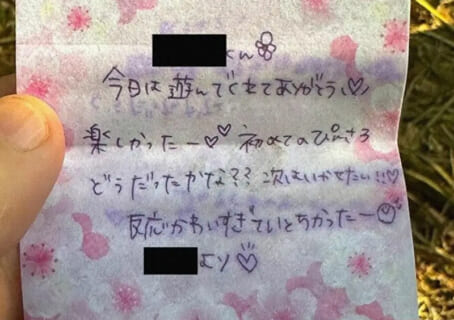 くん
今日は遊んでくれてありがとう♡
楽しかったー♡♡ 初めてのぴんさろ
どうだったかな?? 次はいかせたい!!♡
反応かわいすぎていとちかったー
より♡